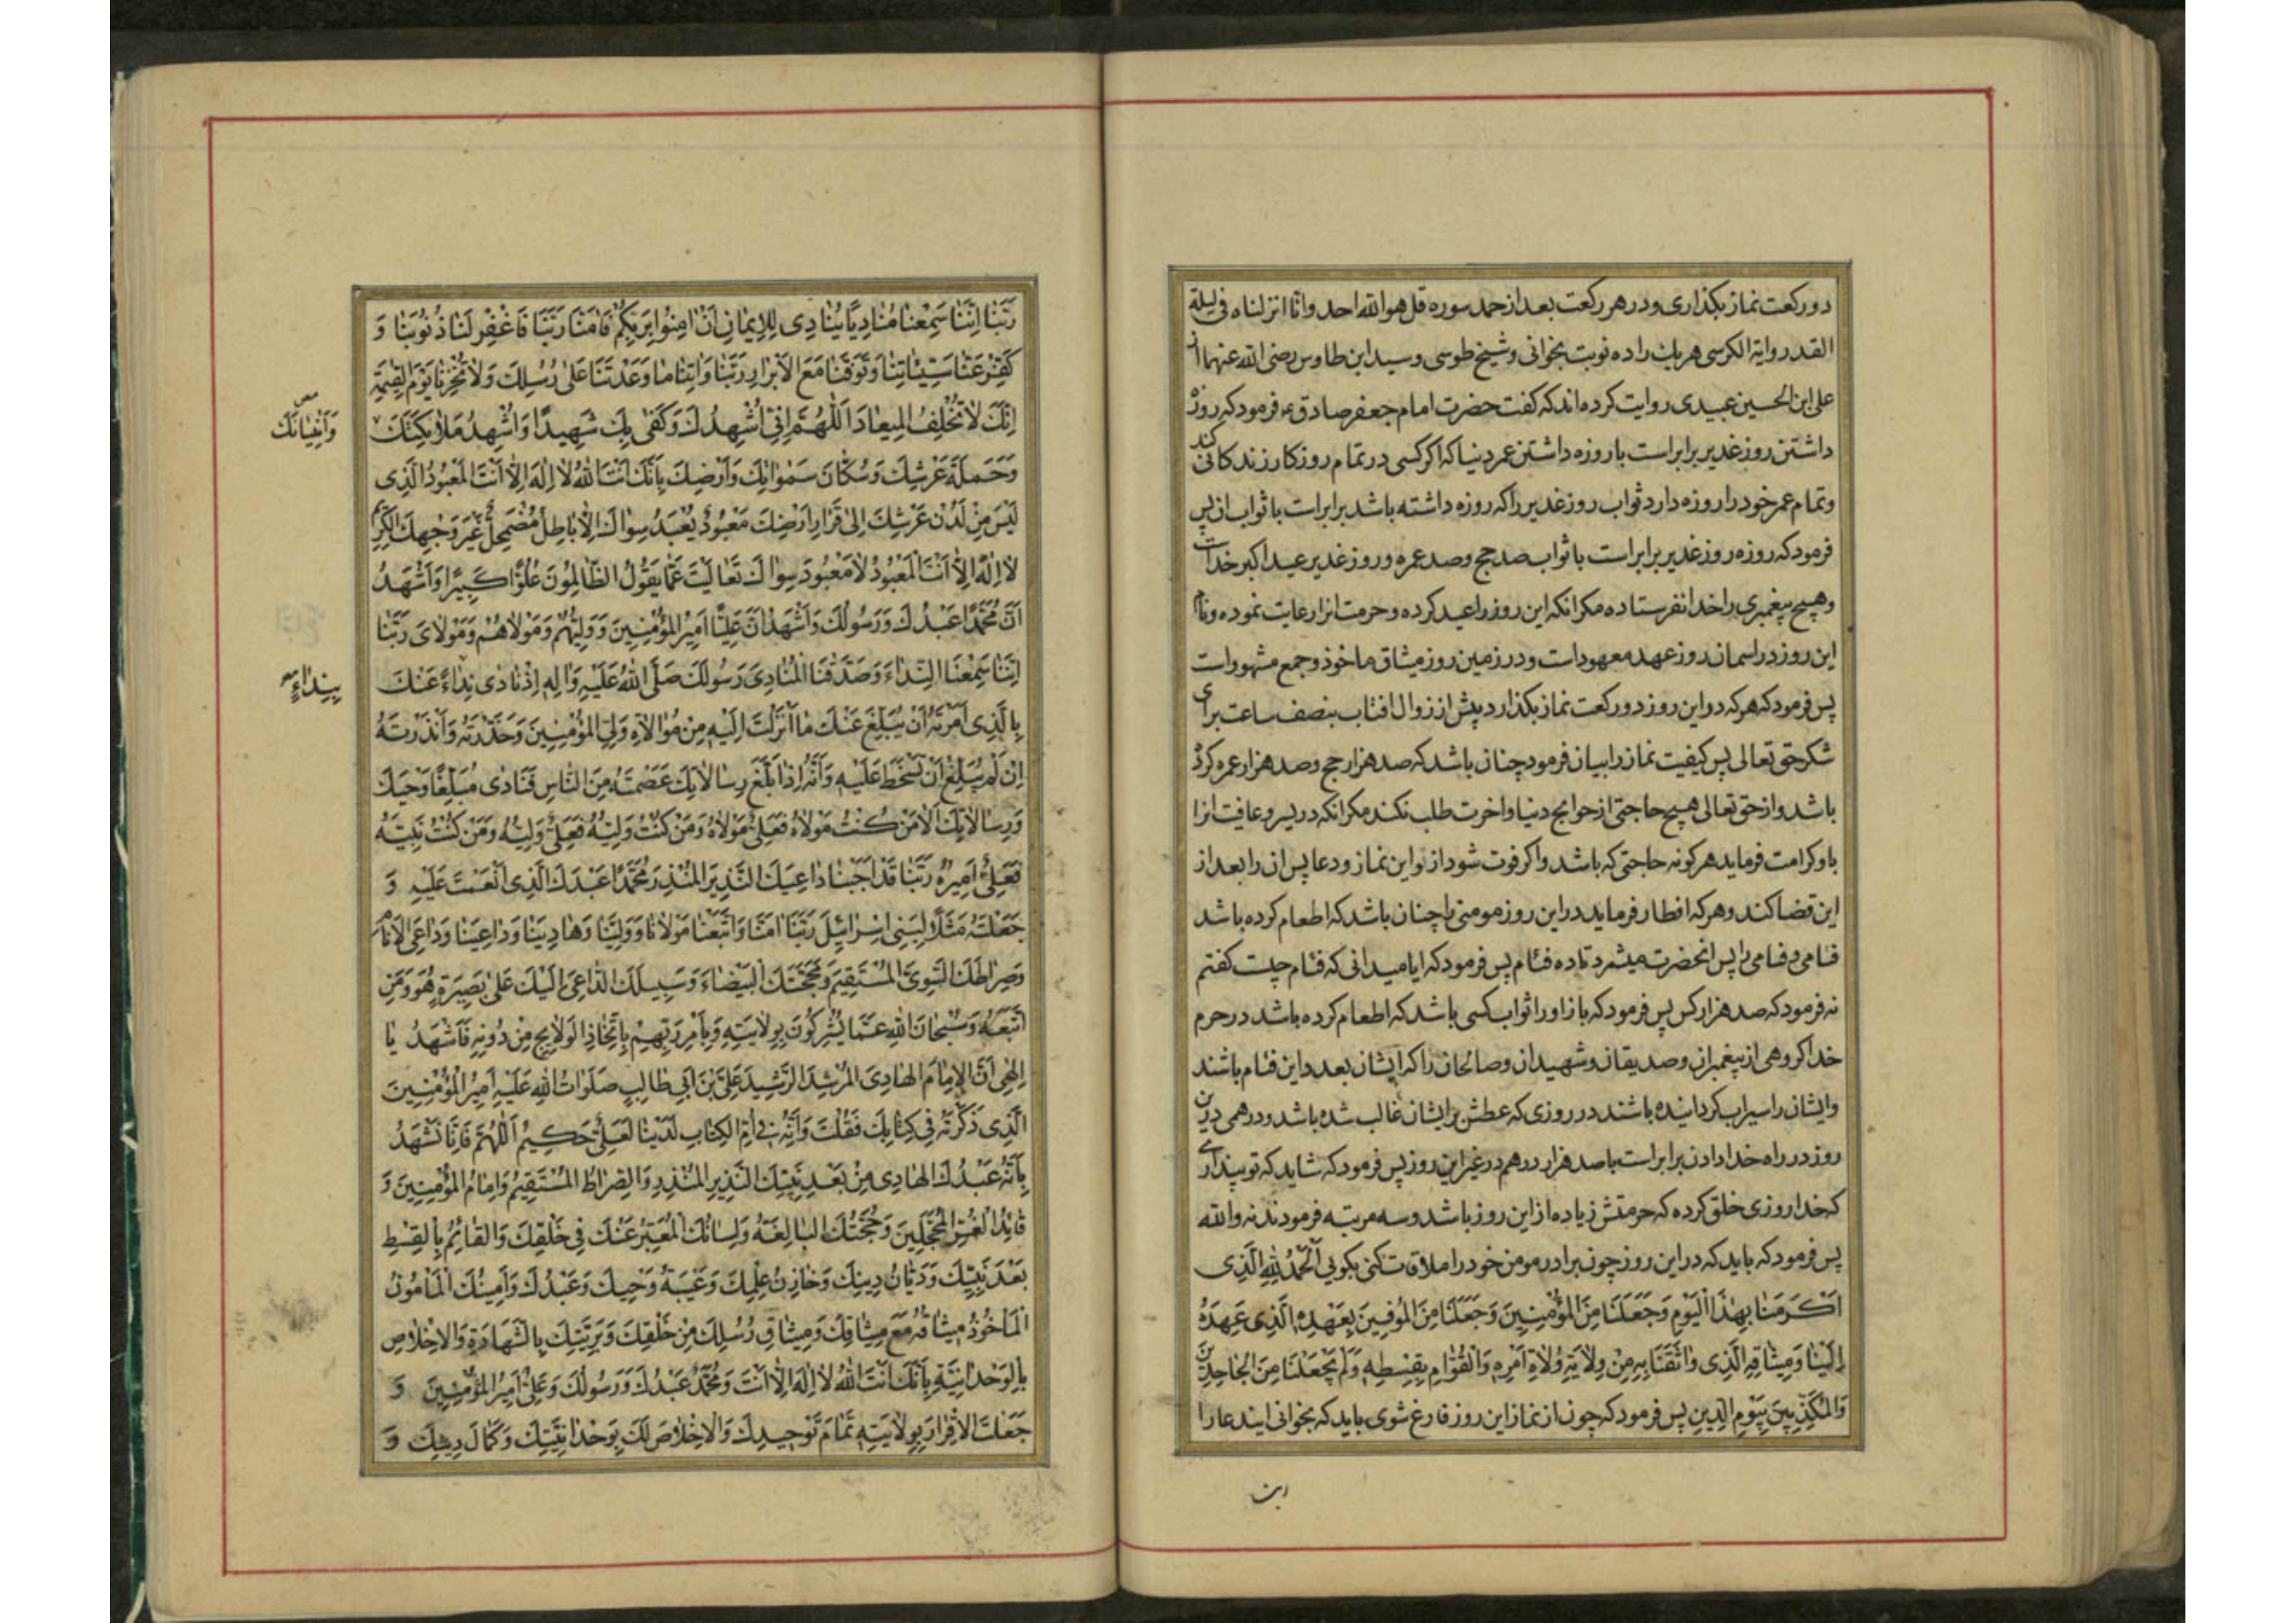 دو ركعت نماز بكذارى و در هر ركعت بعد از حمد سوره قل هو الله احد و انا انزلناه فى ليلة
القدر و اية الكرسى هر يك را ده نوبت بخوانى و شيخ طوسى و سيد ابن طاوس رضى الله عنهما از
على ابن الحسين عبيدى روايت كرده اند كه كفت حضرت امام جعفر صادق ع فرمود كه روزه
داشتن روز غدير برابر است با روزه داشتن عمر دنيا كه اكر كسى در تمام روزكار زندكانى كند
و تمام عمر خود را روزه دارد ثواب روز غدير را كه روزه داشته باشد برابر است با ثواب ان پس
فرمود كه روزه روز غدير برابر است با ثواب صد حج و صد عمره و روز غدير عيد اكبر خداست
و هيچ پيغمبرى را خدا نفرستاده مكر انكه اين روز را عيد كرده و حرمت انرا رعايت نموده و نام
اين روز در اسمان روز عهد معهود است و در زمين روز ميثاق ماخوذ و جمع مشهود است
پس فرمود كه هر كه در اين روز دو ركعت نماز بكذارد پيش از زوال افتاب بنصف ساعت براى
شكر حق تعالى پس كيفيت نماز را بيان فرمود چنان باشد كه صد هزار حج و صد هزار عمره كرده
باشد و از حق تعالى هيچ حاجتى از حوايج دنيا و اخرت طلب نكند مكر انكه در يسر و عافيت انرا
باو كرامت فرمايد هر كونه حاجتى كه باشد و اكر فوت شود از تو اين نماز و دعا پس ان را بعد از
اين قضا كند و هر كه افطار فرمايد در اين روز مومنى را چنان باشد كه اطعام كرده باشد
فئامى و فئامى را پس انحضرت ميشمرد تا ده فئام پس فرمود كه ايا ميدانى كه فئام چيست كفتم
نه فرمود كه صد هزار كس پس فرمود كه باز او را ثواب كسى باشد كه اطعام كرده باشد در حرم
خدا كروهى از پيغمبران و صديقان و شهيدان و صالحان را كه ايشان بعدد اين فئام باشند
و ايشان را سيراب كردانيده باشند در روزى كه عطش بر ايشان غالب شده باشد و درهمى در ين
روز در راه خدا دادن برابر است با صد هزار درهم در غير اين روز پس فرمود كه شايد كه تو پندارى
كه خدا روزى خلق كرده كه حرمتش زياده از اين روز باشد و سه مرتبه فرمودند نه و الله
پس فرمود كه بايد كه در اين روز چون برادر مومن خود را ملاقات كنى بكويى اَلْحَمْدُ لِلّٰهِ الَّذِى
اَكْرَمَنَا بِهٰذَا الْيَوْمِ وَجَعَلَنَا مِنَ الْمُؤْمِنِينَ وَجَعَلَنَا مِنَ الْمُوفِينَ بِعَهْدِهِ الَّذِى عَهِدَهُ
اِلَيْنَا وَمِيثَاقِهِ الَّذِى وَاثَقَنَا بِهِ مِنْ وِلَايَةِ وُلَاةِ اَمْرِهِ وَالْقُوَّامِ بِقِسْطِهِ وَلَمْ يَجْعَلْنَا مِنَ الْجَاحِدِينَ
وَالْمُكَذِّبِينَ بِيَوْمِ الدِّينِ پس فرمود كه چون از نماز اين روز فارغ شوى بايد كه بخوانى ايندعا را
ربنا
رَبَّنَا اِنَّنَا سَمِعْنَا مُنَادِيًا يُنَادِى لِلْاِيمَانِ اَنْ اٰمِنُوا بِرَبِّكُمْ فَاٰمَنَّا رَبَّنَا فَاغْفِرْ لَنَا ذُنُوبَنَا وَ
كَفِّرْ عَنَّا سَيِّئَاتِنَا وَتَوَفَّنَا مَعَ الْاَبْرَارِ رَبَّنَا وَاٰتِنَا مَا وَعَدْتَنَا عَلٰى رُسُلِكَ وَلَا تُخْزِنَا يَوْمَ الْقِيٰمَةِ
اِنَّكَ لَا تُخْلِفُ الْمِيعَادَ اَللّٰهُمَّ اِنِّى اُشْهِدُكَ وَكَفٰى بِكَ شَهِيدًا وَاُشْهِدُ مَلٰائِكَتَكَ
وَاَنْبِيَائَكَ
وَحَمَلَةَ عَرْشِكَ وَسُكَّانَ سَمٰوَاتِكَ وَاَرْضِكَ بِاَنَّكَ اَنْتَ اللّٰهُ لَا اِلٰهَ اِلَّا اَنْتَ الْمَعْبُودُ الَّذِى
لَيْسَ مِنْ لَدُنْ عَرْشِكَ اِلٰى قَرَارِ اَرْضِكَ مَعْبُودٌ يُعْبَدُ سِوَاكَ اِلَّا بَاطِلٌ مُضْمَحِلٌّ غَيْرَ وَجْهِكَ الْكَرِيمِ
لَا اِلٰهَ اِلَّا اَنْتَ الْمَعْبُودُ لَا مَعْبُودَ سِوَاكَ تَعَالَيْتَ عَمَّا يَقُولُ الظَّالِمُونَ عُلُوًّا كَبِيرًا وَاَشْهَدُ
اَنَّ مُحَمَّدًا عَبْدُكَ وَرَسُولُكَ وَاَشْهَدُ اَنَّ عَلِيًّا اَمِيرُ الْمُؤْمِنِينَ وَوَلِيُّهُمْ وَمَوْلَاهُمْ وَمَوْلَاىَ رَبَّنَا
اِنَّنَا سَمِعْنَا النِّدَاءَ وَصَدَّقْنَا الْمُنَادِىَ رَسُولَكَ صَلَّى اللّٰهُ عَلَيْهِ وَاٰلِهِ اِذْ نَادٰى نِدَاءً عَنْكَ
بِنِدَاءٍ
بِالَّذِى اَمَرْتَهُ اَنْ يُبَلِّغَ عَنْكَ مَا اَنْزَلْتَ اِلَيْهِ مِنْ مُوَالَاةِ وَلِىِّ الْمُؤْمِنِينَ وَحَذَّرْتَهُ وَاَنْذَرْتَهُ
اِنْ لَمْ يُبَلِّغْ اَنْ تَسْخَطَ عَلَيْهِ وَاَنَّهُ اِذَا بَلَّغَ رِسَالَاتِكَ عَصَمْتَهُ مِنَ النَّاسِ فَنَادٰى مُبَلِّغًا وَحْيَكَ
وَرِسَالَاتِكَ اَلَا مَنْ كُنْتُ مَوْلَاهُ فَعَلِىٌّ مَوْلَاهُ وَمَنْ كُنْتُ وَلِيَّهُ فَعَلِىٌّ وَلِيُّهُ وَمَنْ كُنْتُ نَبِيَّهُ
فَعَلِىٌّ اَمِيرُهُ رَبَّنَا قَدْ اَجَبْنَا دَاعِيَكَ النَّذِيرَ الْمُنْذِرَ مُحَمَّدًا عَبْدَكَ الَّذِى اَنْعَمْتَ عَلَيْهِ وَ
جَعَلْتَهُ مَثَلًا لِبَنِى اِسْرَائِيلَ رَبَّنَا اٰمَنَّا وَاتَّبَعْنَا مَوْلَانَا وَوَلِيَّنَا وَهَادِيَنَا وَدَاعِيَنَا وَدَاعِىَ الْاَنَامِ
وَصِرَاطَكَ السَّوِىَّ الْمُسْتَقِيمَ وَمَحَجَّتَكَ الْبَيْضَاءَ وَسَبِيلَكَ الدَّاعِىَ اِلَيْكَ عَلٰى بَصِيرَةٍ هُوَ وَمَنِ
اتَّبَعَهُ وَسُبْحَانَ اللّٰهِ عَمَّا يُشْرِكُونَ بِوِلَايَتِهِ وَبِاَمْرِ رَبِّهِمْ بِاتِّخَاذِ الْوَلَايِجِ مِنْ دُونِهِ فَاَشْهَدُ يَا
اِلٰهِى اَنَّ الْاِمَامَ الْهَادِىَ الْمُرْشِدَ الرَّشِيدَ عَلِىَّ بْنَ اَبِى طَالِبٍ صَلَوَاتُ اللّٰهِ عَلَيْهِ اَمِيرُ الْمُؤْمِنِينَ
الَّذِى ذَكَرْتَهُ فِى كِتَابِكَ فَقُلْتَ وَاِنَّهُ فِى اُمِّ الْكِتَابِ لَدَيْنَا لَعَلِىٌّ حَكِيمٌ اَللّٰهُمَّ فَاِنَّا نَشْهَدُ
بِاَنَّهُ عَبْدُكَ الْهَادِى مِنْ بَعْدِ نَبِيِّكَ النَّذِيرِ الْمُنْذِرِ وَالصِّرَاطُ الْمُسْتَقِيمُ وَاِمَامُ الْمُؤْمِنِينَ وَ
قَائِدُ الْغُرِّ الْمُحَجَّلِينَ وَحُجَّتُكَ الْبَالِغَةُ وَلِسَانُكَ الْمُعَبِّرُ عَنْكَ فِى خَلْقِكَ وَالْقَائِمُ بِالْقِسْطِ
بَعْدَ نَبِيِّكَ وَدَيَّانُ دِينِكَ وَخَازِنُ عِلْمِكَ وَعَيْبَةُ وَحْيِكَ وَعَبْدُكَ وَاَمِينُكَ الْمَأْمُونُ
الْمَأْخُوذُ مِيثَاقُهُ مَعَ مِيثَاقِكَ وَمِيثَاقِ رُسُلِكَ مِنْ خَلْقِكَ وَبَرِيَّتِكَ بِالشَّهَادَةِ وَالْاِخْلَاصِ
بِالْوَحْدَانِيَّةِ بِاَنَّكَ اَنْتَ اللّٰهُ لَا اِلٰهَ اِلَّا اَنْتَ وَمُحَمَّدٌ عَبْدُكَ وَرَسُولُكَ وَعَلِىٌّ اَمِيرُ الْمُؤْمِنِينَ وَ
جَعَلْتَ الْاِقْرَارَ بِوِلَايَتِهِ تَمَامَ تَوْحِيدِكَ وَالْاِخْلَاصَ لَكَ بِوَحْدَانِيَّتِكَ وَكَمَالَ دِينِكَ وَ